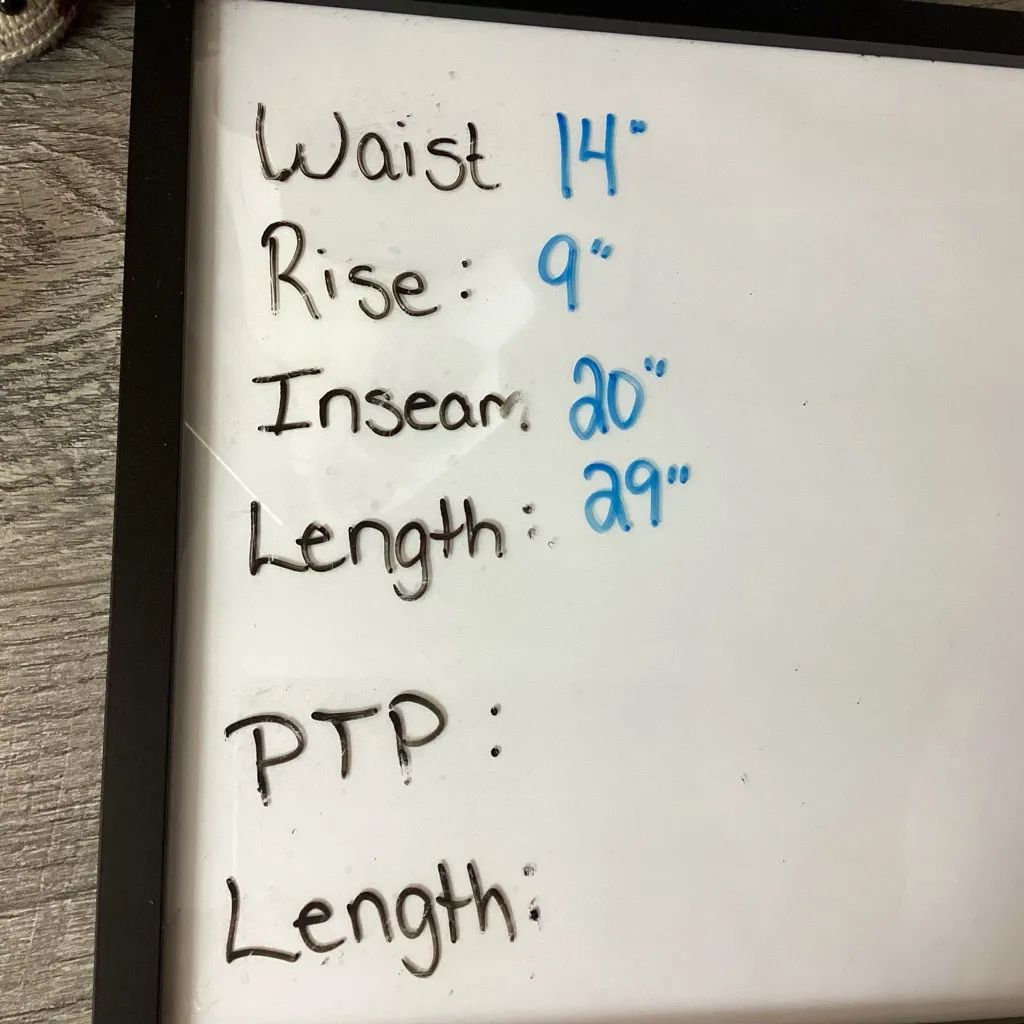 Waist 14"
Rise: 9"
Inseam 20"
Length: 29"
PTP:
Length: